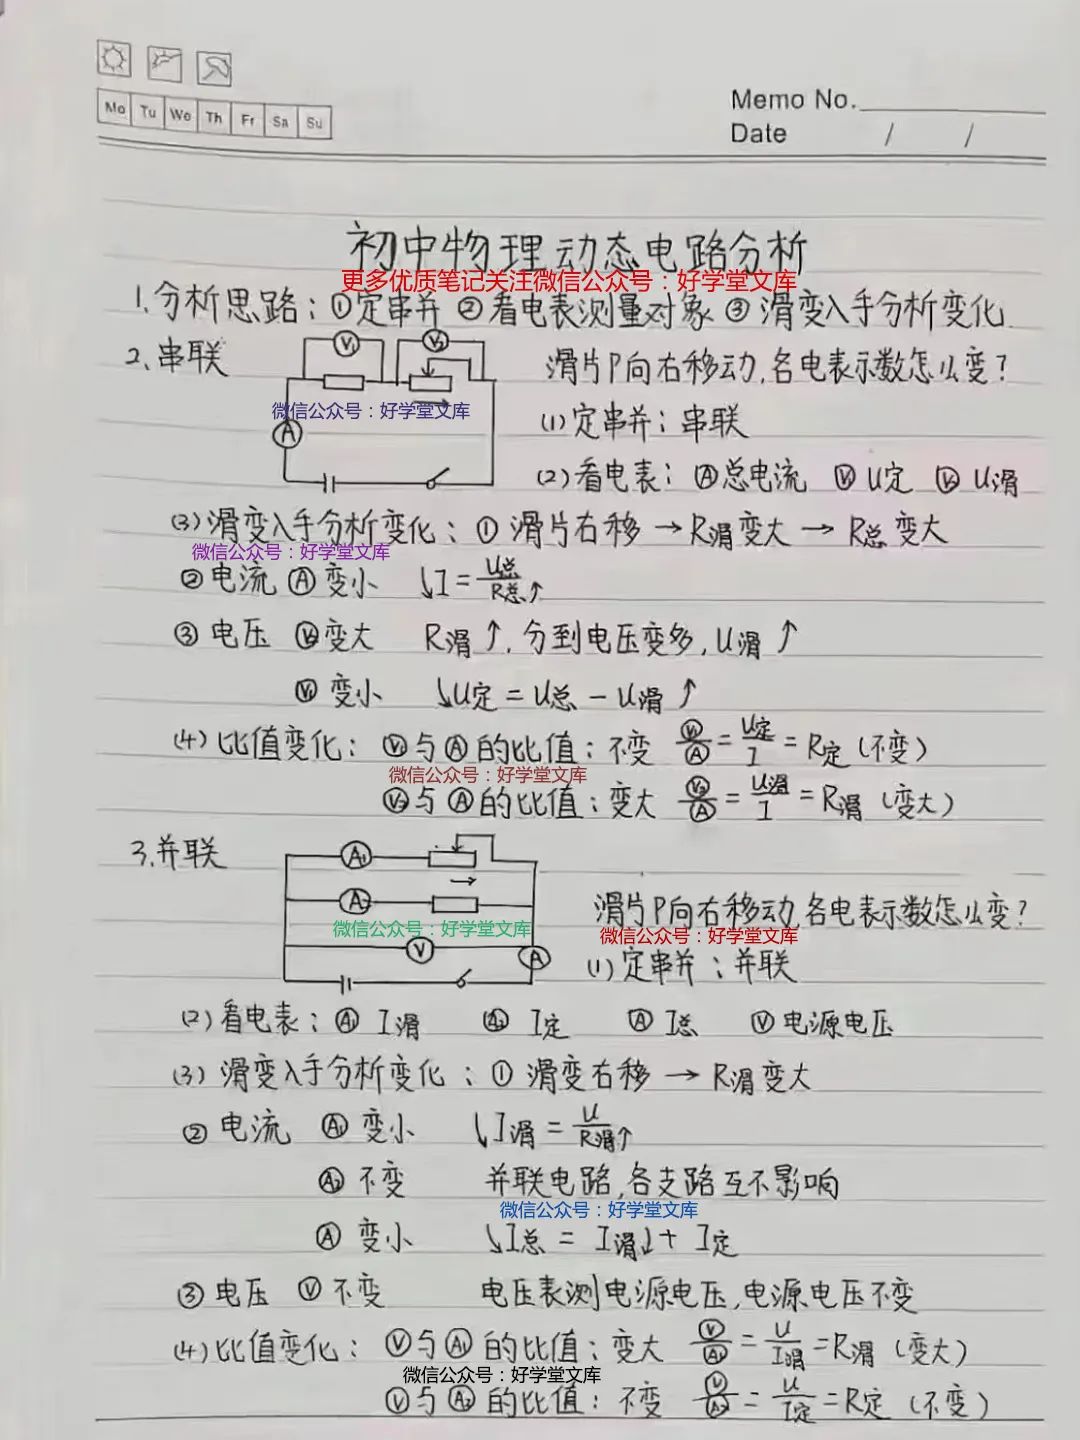 Mo Tu We Th Fr Sa Su
Memo No.
Date / /
初中物理动态电路分析
更多优质笔记关注微信公众号：好学堂文库
1.分析思路：①定串并 ②看电表测量对象 ③滑变入手分析变化
2.串联
V₁ V₂
滑片P向右移动,各电表示数怎么变？
微信公众号：好学堂文库
A
(1)定串并：串联
(2)看电表：Ⓐ总电流 V₁ U定 V₂ U滑
(3)滑变入手分析变化：① 滑片右移 → R滑变大 → R总变大
微信公众号：好学堂文库
②电流 Ⓐ变小 ↓I = U总/R总↑
③电压 V₂变大 R滑↑,分到电压变多,U滑↑
V₁ 变小 ↓U定 = U总 - U滑↑
(4)比值变化：V₁与Ⓐ的比值：不变 V₁/A = U定/I = R定(不变)
微信公众号：好学堂文库
V₂与Ⓐ的比值：变大 V₂/A = U滑/I = R滑(变大)
3.并联
A₁
A₂
滑片P向右移动,各电表示数怎么变？
微信公众号：好学堂文库
微信公众号：好学堂文库
V A
(1)定串并：并联
(2)看电表：A₁ I滑 A₂ I定 Ⓐ I总 Ⓥ电源电压
(3)滑变入手分析变化：① 滑变右移 → R滑变大
②电流 A₁ 变小 ↓I滑 = U/R滑↑
A₂ 不变 并联电路,各支路互不影响
微信公众号：好学堂文库
Ⓐ 变小 ↓I总 = I滑↓+ I定
③电压 Ⓥ不变 电压表测电源电压,电源电压不变
(4)比值变化：Ⓥ与A₁的比值：变大 V/A₁ = U/I滑 = R滑(变大)
微信公众号：好学堂文库
Ⓥ与A₂的比值：不变 V/A₂ = U/I定 = R定(不变)